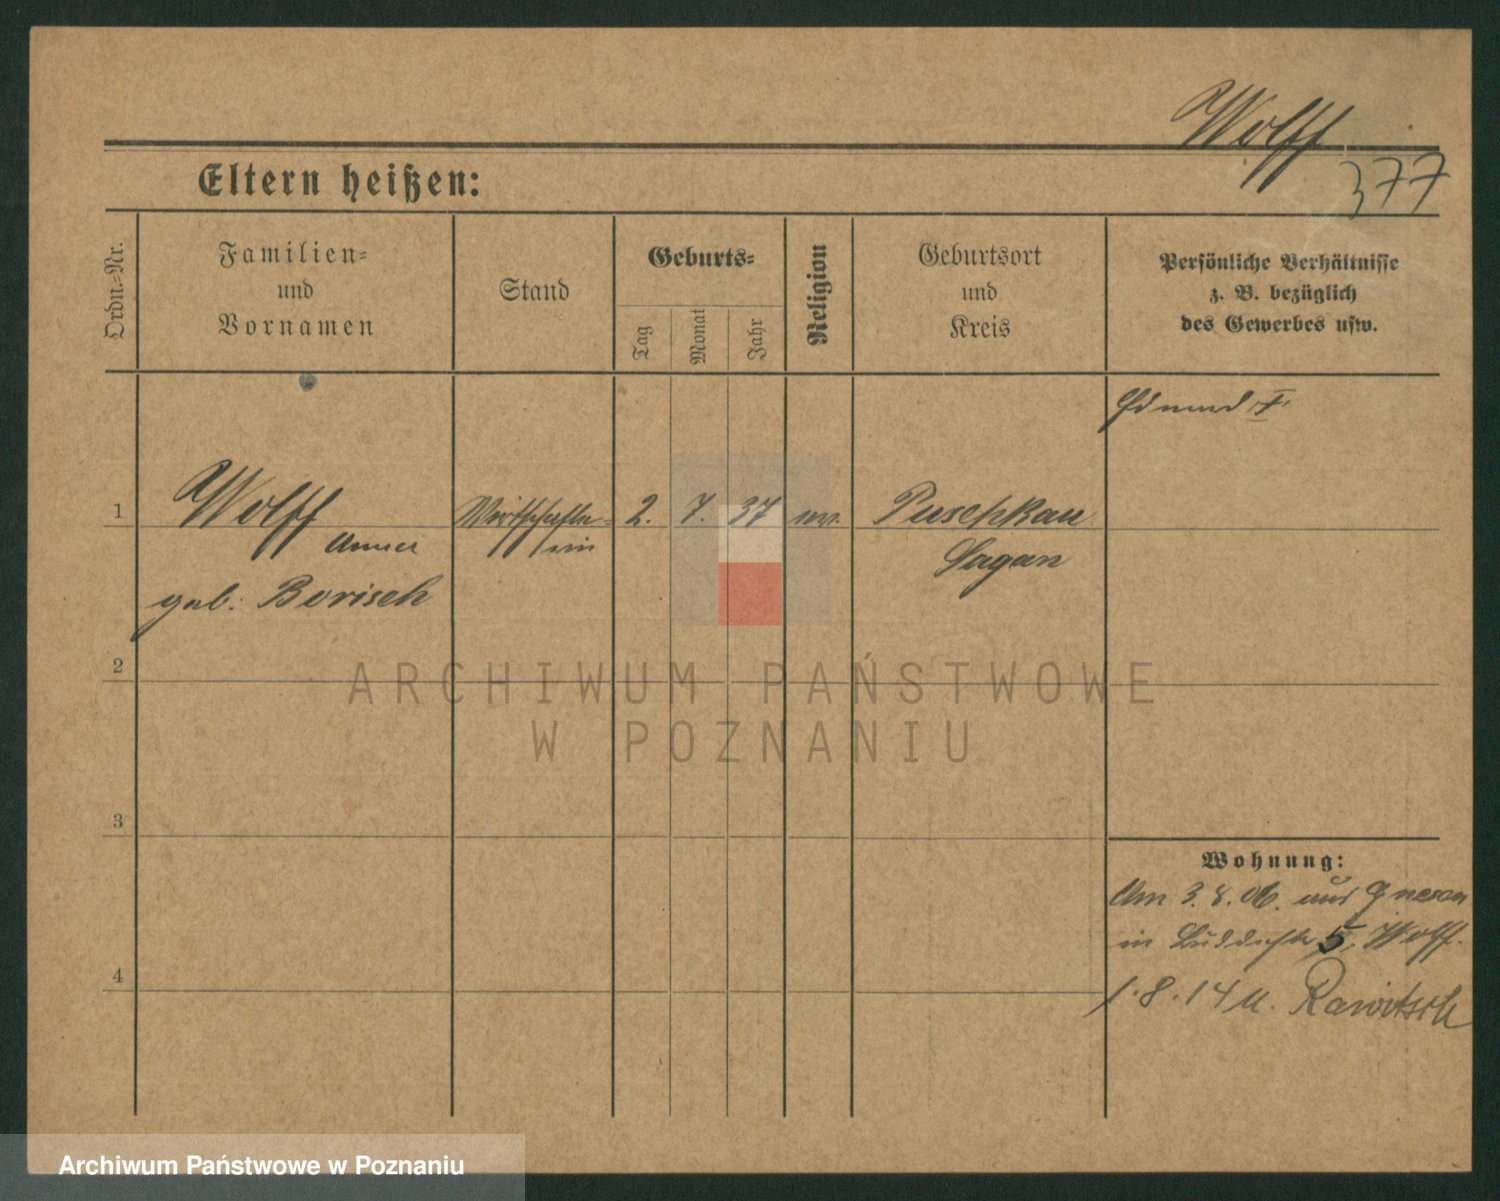 Wolff
377
Eltern heißen:
Ordn.-Nr.
Familien-
und
Vornamen
Stand
Geburts-
Tag
Monat
Jahr
Religion
Geburtsort
und
Kreis
Persönliche Verhältnisse
z. B. bezüglich
des Gewerbes usw.
Edmund †
1
Wolff
Anna
geb. Borisch
2. 7. 37
Puschkau
Sagan
2
ARCHIWUM PAŃSTWOWE
W POZNANIU
3
Wohnung:
Am 3. 8. 06. aus Gnesen
in 5, Wolff.
4
1.8.14 n. Rawitsch
Archiwum Państwowe w Poznaniu